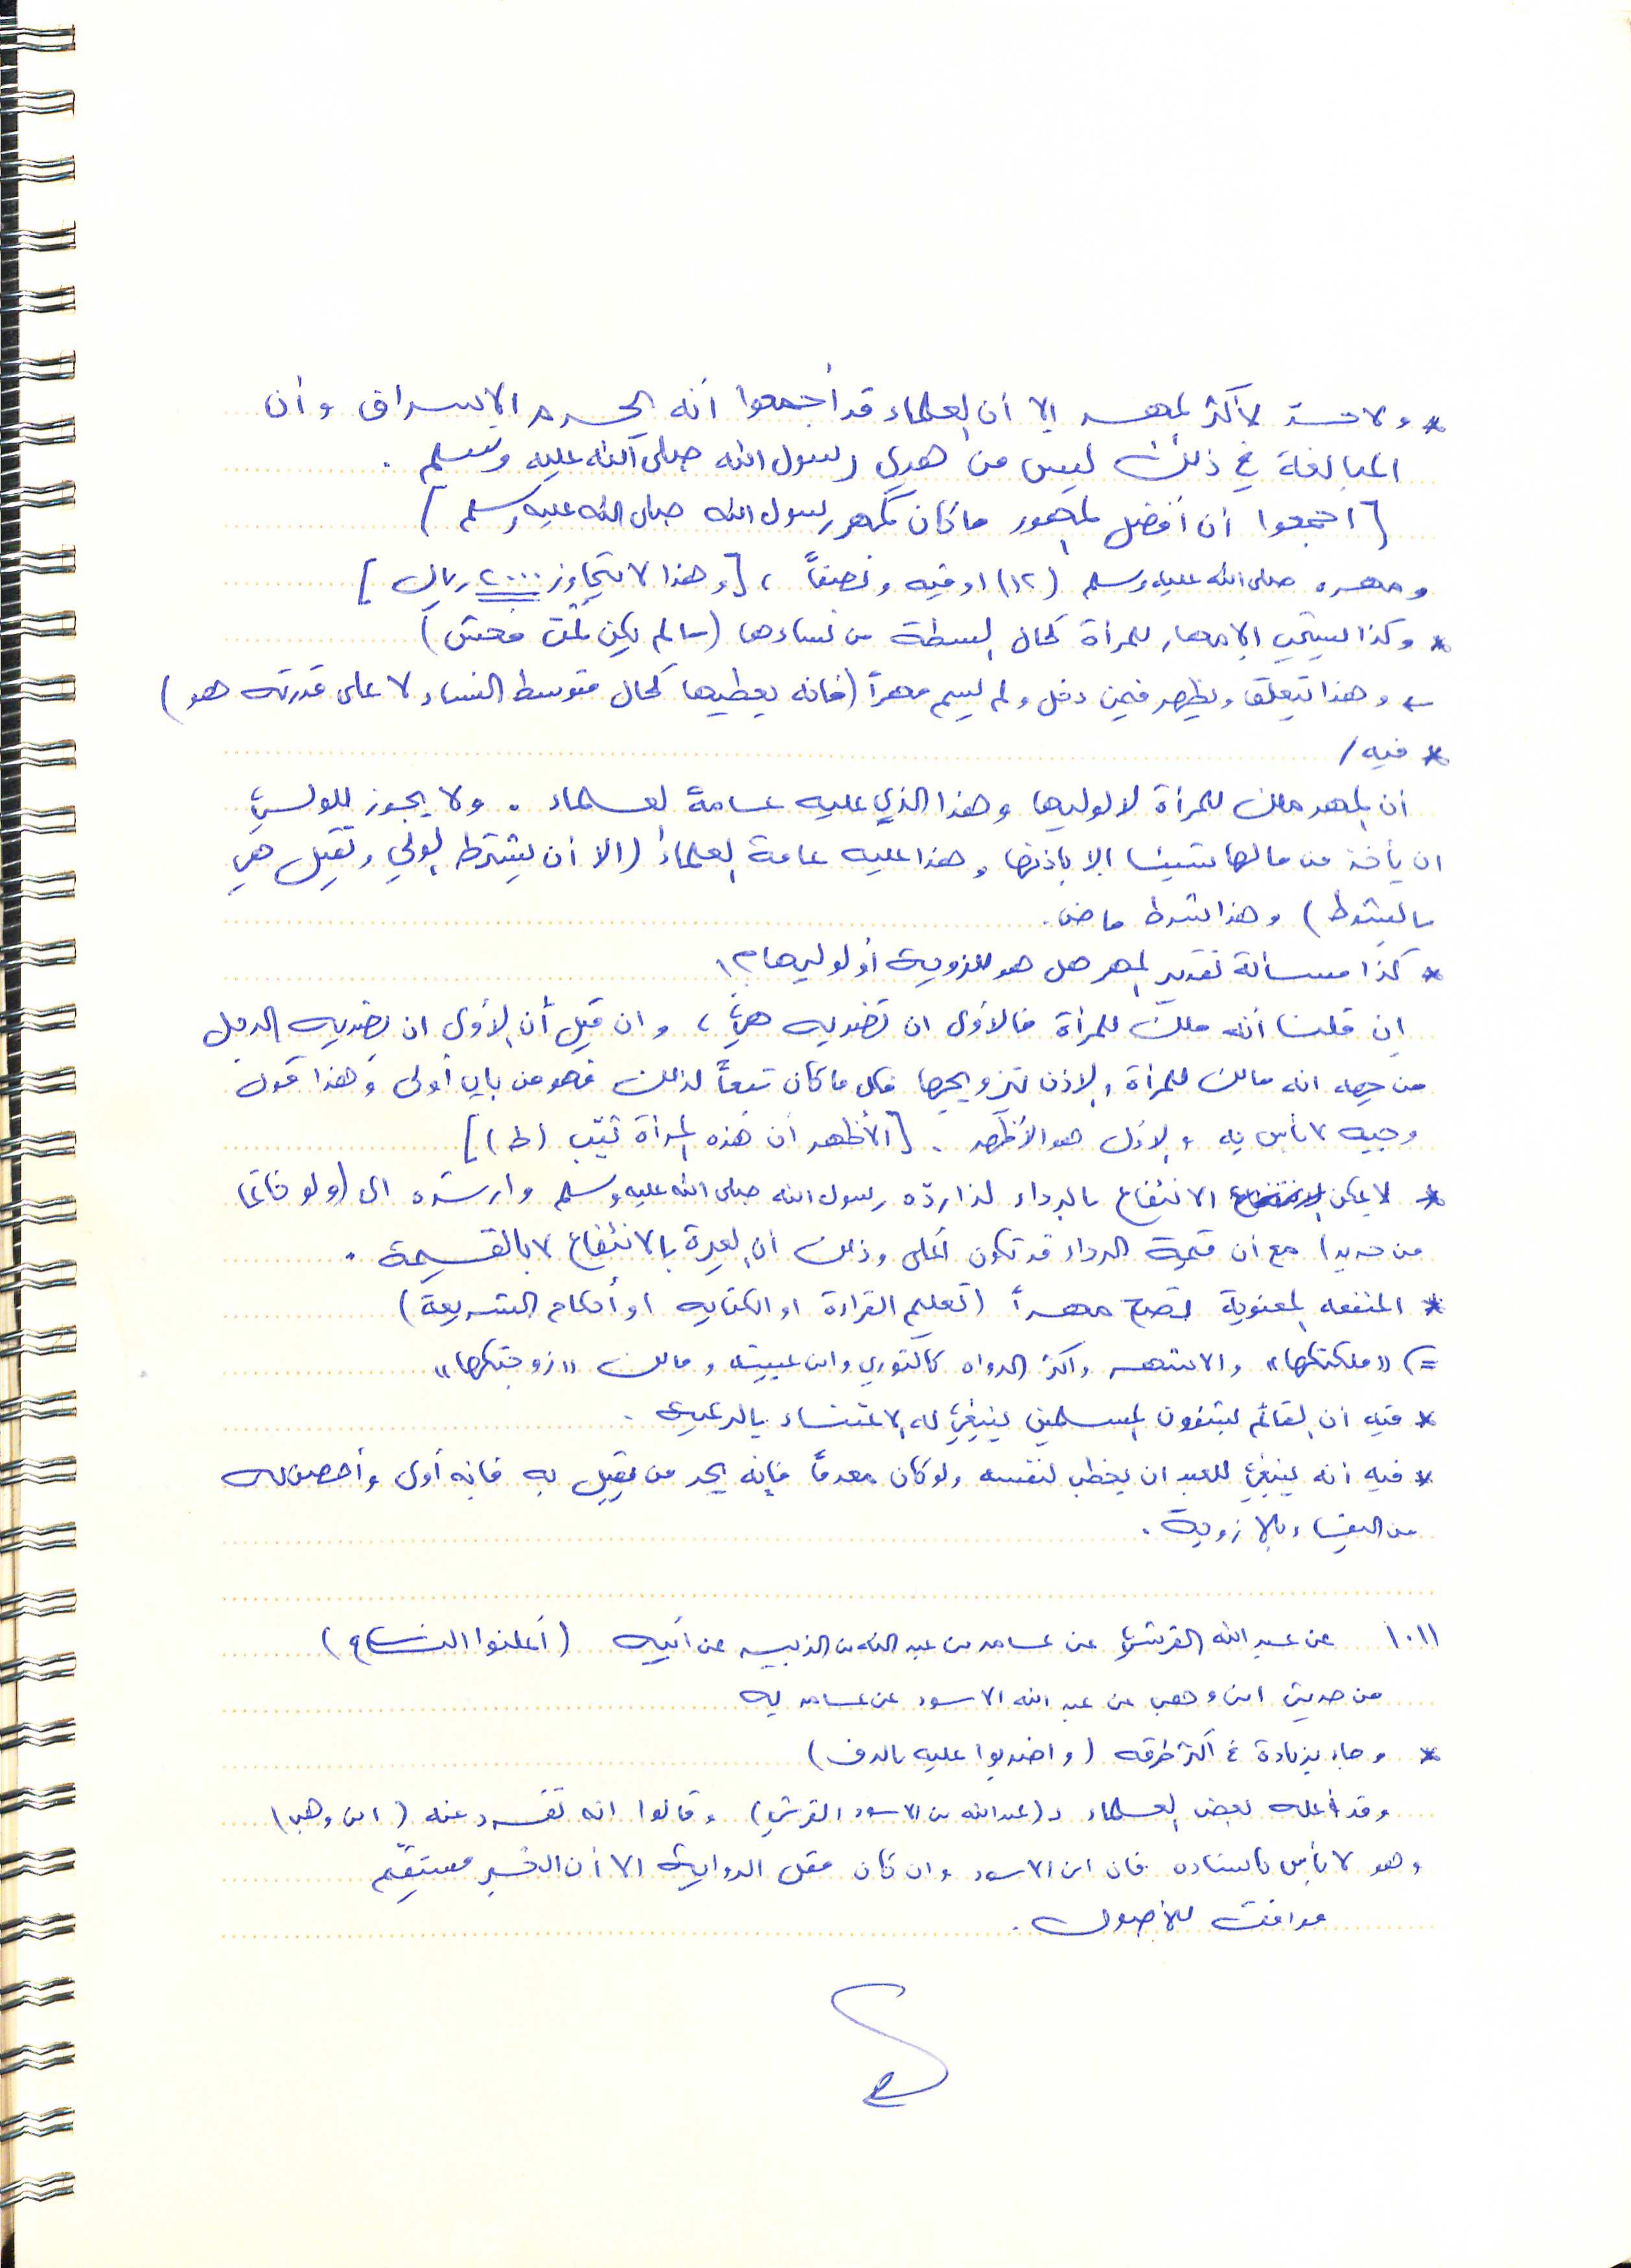 * ولا حد لأكثر المهر إلا أن العلماء قد أجمعوا أنه يحرم الإسراف وأن
المبالغة في ذلك ليس من هدي رسول الله صلى الله عليه وسلم .
[اجمعوا أن أفضل المهور ما كان كمهر رسول الله صلى الله عليه وسلم]
ومهره صلى الله عليه وسلم (١٢) اوقيه ونصفاً ، [وهذا لا يتجاوز ٢٠٠٠ ريال]
* وكذا يستحب الإمهار للمرأة كحال البسطة من نساءها (مالم يكن ثمت فحش)
← وهذا يتعلق ويظهر فيمن دخل ولم يسم مهراً (فانه يعطيها كحال متوسط النساء لا على قدرته هو)
* فيه /
أن المهر ملك للمرأة لا لوليها وهذا الذي عليه عامة العلماء . ولا يجوز للولي
ان يأخذ من مالها شيئا الا باذنها وهذا عليه عامة العلماء (الا أن يشترط الولي وتقبل هي
بالشرط) وهذا شرط ماض .
* كذا مسألة تقدير المهر هل هو للزوجة أو لوليها ؟!
إن قلنا أنه ملك للمرأة فالأولى ان تضربه هي ، وان قيل أن الأولى ان يضربه الرجل
من جهه انه مالك للمرأة والاذن بتزويجها فكل ما كان تبعاً لذلك فهو من باب أولى وهذا قول
وجيه لا بأس به ، والاول هو الأظهر . [الأظهر أن هذه المرأة ثيب (ط)]
* لا يمكن الانتفاع بالرداء لذا ردّه رسول الله صلى الله عليه وسلم وارشده الى (ولو خاتما
من حديد) مع أن قيمة الرداء قد تكون أعلى وذلك أن العبرة بالانتفاع لا بالقيمة .
* المنفعه المعنوية تصح مهراً (تعليم القراءة او الكتابه او أحكام الشريعة)
=) «ملكتكها» والاشهر واكثر الرواه كالثوري وابن عيينه ومالك «زوجتكها»
* فيه أن القائم بشؤون المسلمين ينبغي له الاعتناء بالرعية .
* فيه انه ينبغي للعبد ان يخطب لنفسه ولو كان معدماً فإنه يجد من يقبل به فإنه أولى وأحصن له
من البقاء بلا زوجة .
١٠١١ عن عبد الله القرشي عن عامر بن عبد الله بن الزبير عن أبيه (أعلنوا النكاح)
من حديث ابن وهب عن عبد الله الاسود عن عامر به
* وجاء بزيادة في أكثر طرقه (واضربوا عليه بالدف)
وقد أعله بعض العلماء بـ (عبد الله بن الاسود القرشي) وقالوا انه تفرد عنه (ابن وهب)
وهو لا بأس باسناده فان ابن الاسود وان كان مقل الرواية الا أن الخبر مستقيم
موافق للأصول .